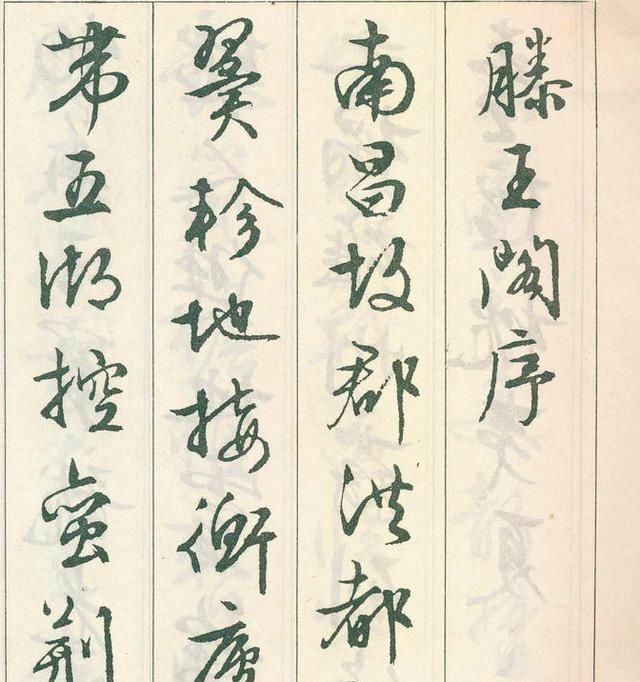 滕王阁序
南昌故郡洪都
翼轸地接衡庐
带五湖控蛮荆